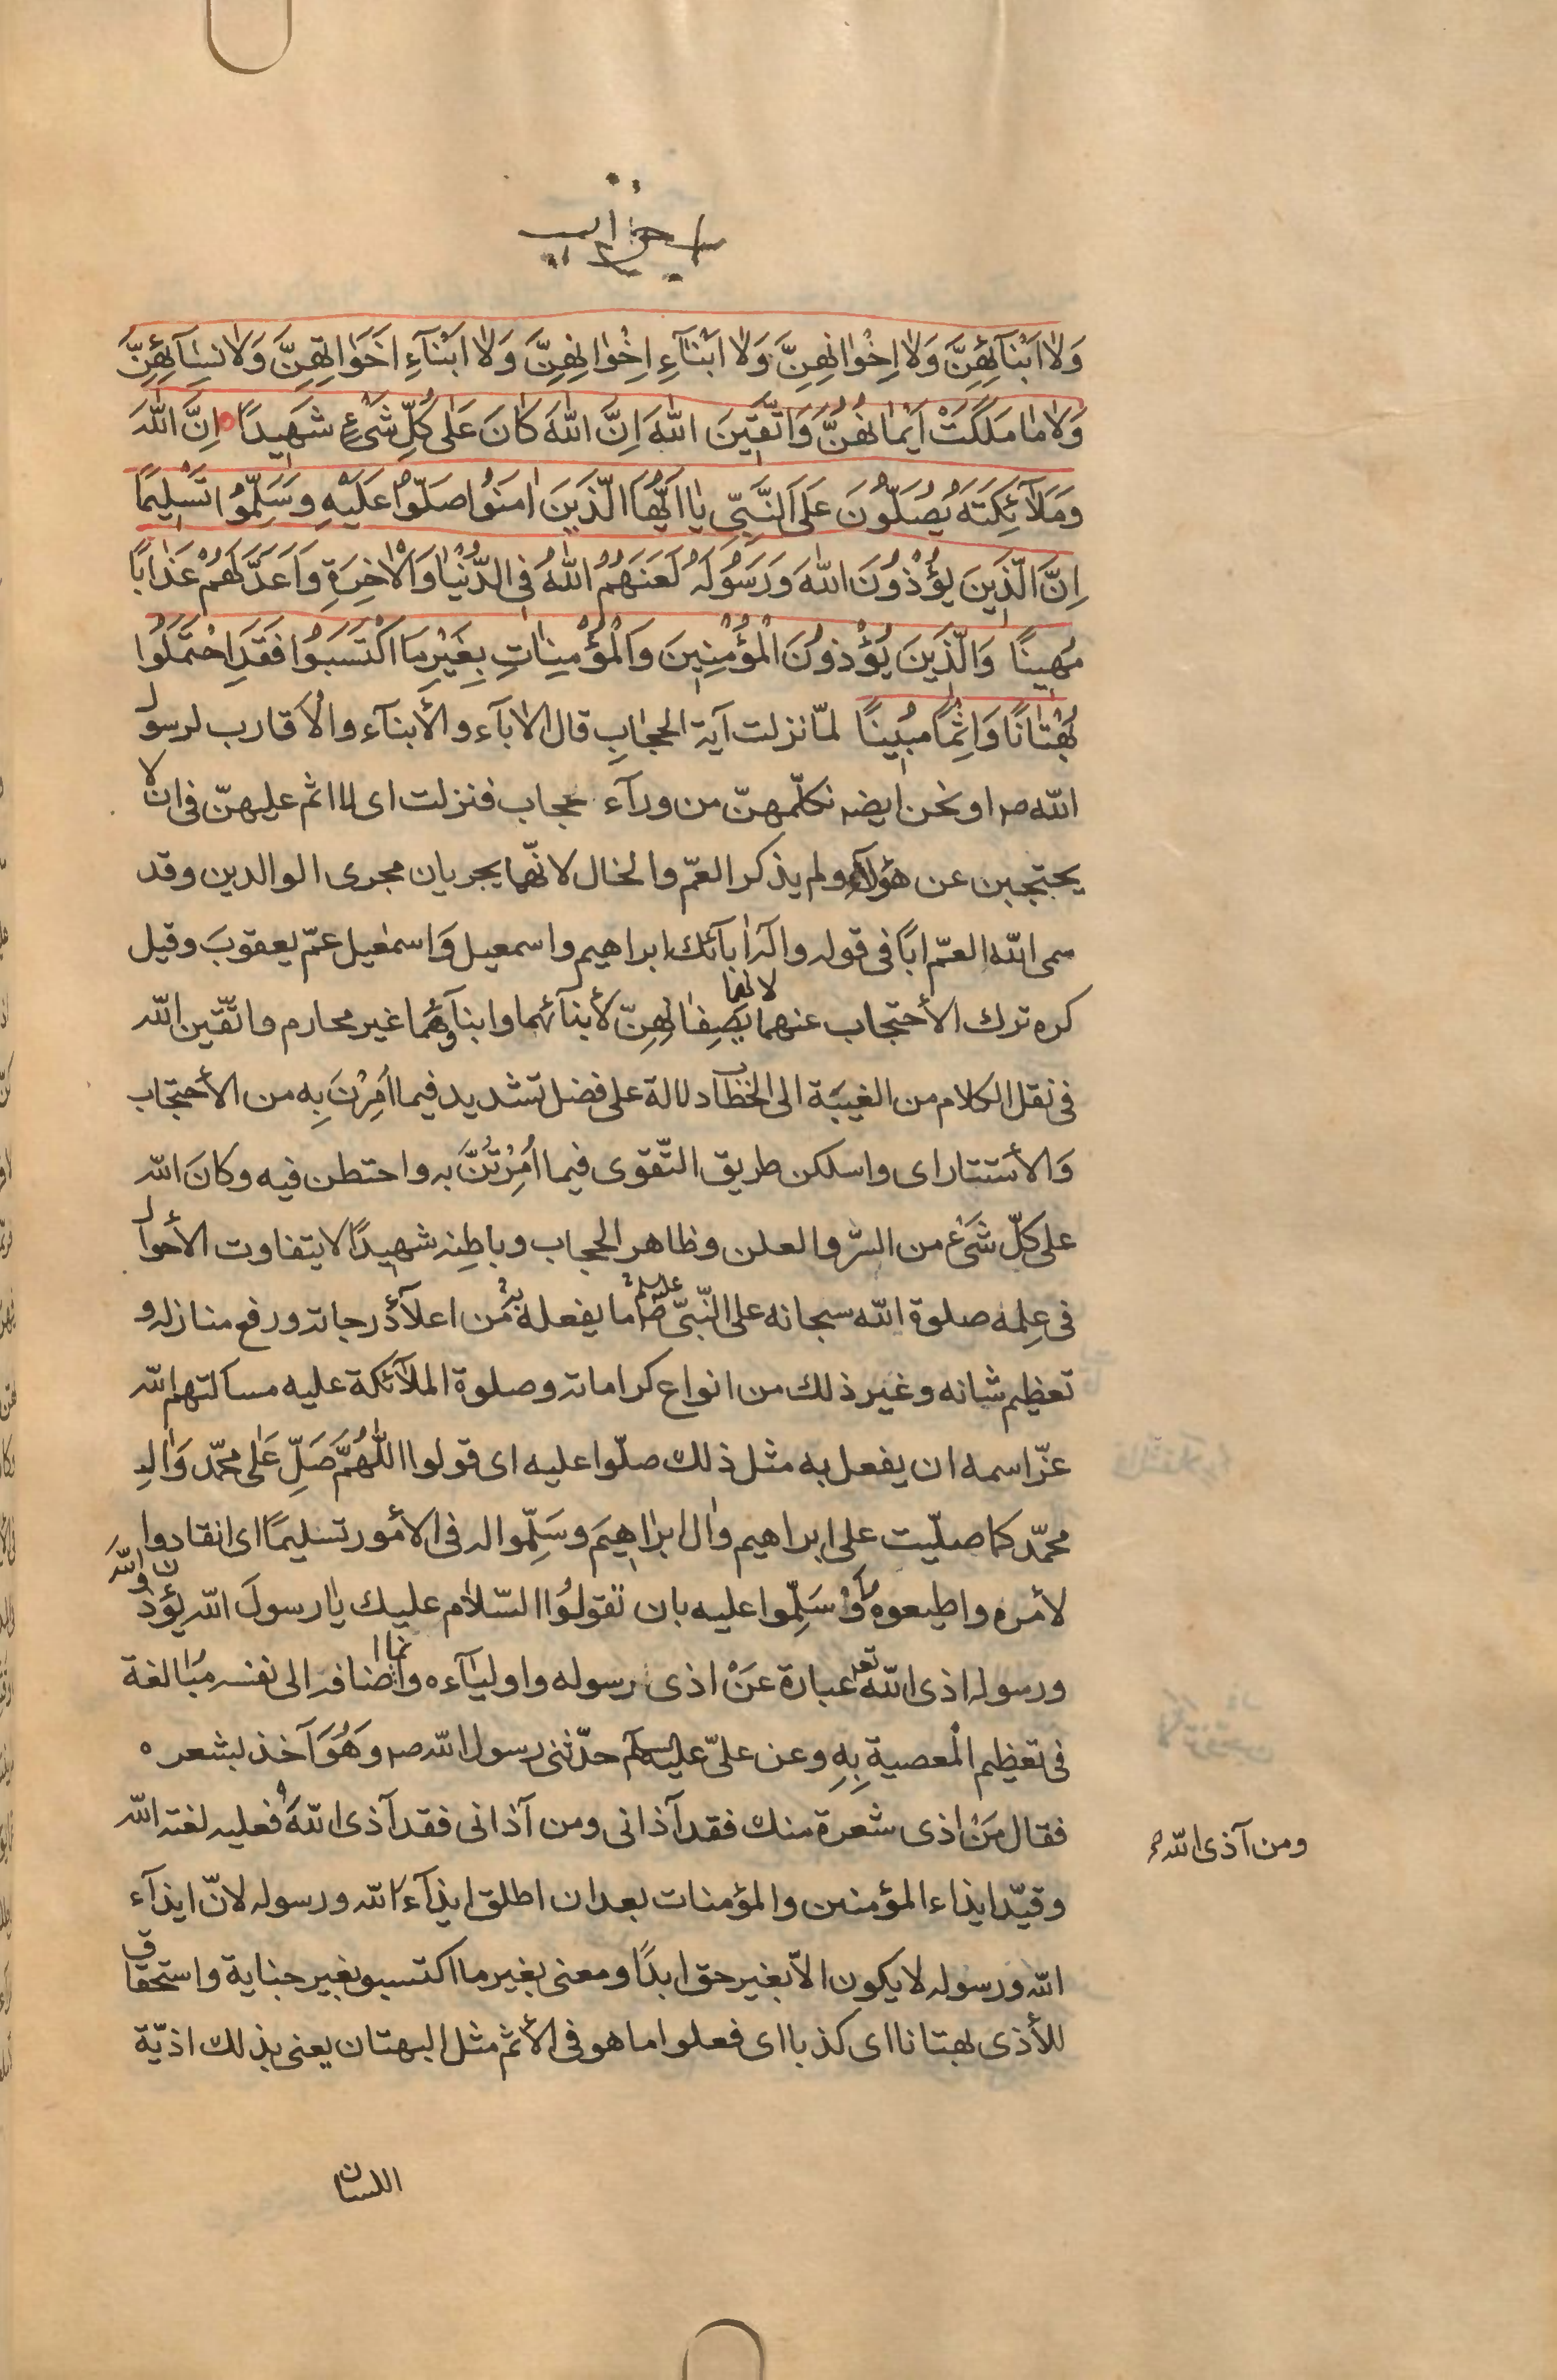 احزاب
وَلا اَبْنآئِهِنَّ وَلا اِخْوانِهِنَّ وَلا اَبْنآءِ اِخْوانِهِنَّ وَلا ابْنآءِ اَخَواتِهِنَّ وَلا نِسآئِهِنَّ
وَلا ما مَلَكَتْ اَيْمانُهُنَّ وَاتَّقينَ اللهَ اِنَّ اللهَ كانَ عَلى كُلِّ شَىْءٍ شَهيدًا اِنَّ اللهَ
وَمَلآئِكَتَهُ يُصَلُّونَ عَلَى النَّبِىِّ يا اَيُّهَا الَّذينَ امَنُوا صَلّوا عَلَيْهِ وَسَلِّمُوا تَسْليمًا
اِنَّ الَّذينَ يُؤْذُونَ اللهَ وَرَسُولَهُ لَعَنَهُمُ اللهُ فِى الدُّنْيا وَالاخِرَةِ وَاَعَدَّ لَهُمْ عَذابًا
مُهينًا وَالَّذينَ يُؤْذُونَ الْمُؤْمِنينَ وَالْمُؤْمِناتِ بِغَيْرِ مَا اكْتَسَبُوا فَقَدِ احْتَمَلُوا
بُهْتانًا وَاِثْمًا مُبينًا لمّا نزلت آية الحجابِ قال الابآء والأبنآء والأقارب لرسول
الله ص او نحن ايضه نكلّمهنّ من ورآء حجاب فنزلت اى لا اثم عليهنّ فى ان لا
يحتجبن عن هؤلآء ولم يذكر العمّ والخال لانّهما يجريان مجرى الوالدين وقد
سمى الله العمّ ابًا فى قوله واله ابآئك ابراهيم واسمعيل وَاسمعيل عمّ يعقوبَ وقيل
كره ترك الأحتجاب عنهما لانهما يصِفانهِنّ لأبنآئهما وابنآؤهُما غير محارم واتّقين الله
فى نقل الكلام من الغيبَة الى الخطاب دلالة على فضل تشديد فيما اُمِرْنَ بِه من الأحتجاب
وَالأستتار اى واسلكن طريق التّقوى فيما اُمِرْتُنَّ به واحتطن فيه وكانَ الله
على كلّ شَىْء من السّر والعلن وظاهر الحجاب وباطنِه شهيدًا لا يتفاوت الأحوال
فى عِلمه صلوة الله سبحانه على النّبىّ ص ما يفعله به مِن اعلآء درجاته ورفع منازله و
تعظيم شانه وغير ذلك من انواع كراماته وصلوة الملآئكة عليه مسالتهم الله
عزّ اسمه ان يفعل به مثل ذلك صلّوا عليه اى قولوا اللّهُمَّ صَلِّ عَلى محمّد وَال
محمّد كما صلّيت على ابراهيم وال ابراهيمَ وسَلِّموا له فى الأمور تسليمًا اى انقادوا
لأمره واطيعوه اَوْ سَلِّموا عليه بان تقولُوا السّلام عليك يا رسولَ الله يؤذون الله
ورسوله اذى الله تعه عبارة عَنْ اذى رسوله واوليآءه وانما اضافه الى نفسه مُبالغة
فى تعظيم الْمعصية بِهِ وعن علىّ عليه السلام حدّثنى رسول الله ص وَهُوَ آخذ بشعره
فقال مَنْ اذى شعرة منك فقد آذانى ومن آذانى فقد آذى اللهَ فعليه لعنة الله
ومن آذى الله
وقيّد ايذاء المؤمنين والمؤمنات بعد ان اطلق ايذآء الله ورسوله لانّ ايذآء
الله ورسوله لا يكون الاّ بغير حق ابدًا ومعنى بغير ما اكتسبو بغير جناية واستحقاق
للأذى بهتانا اى كذبا اى فعلوا ما هو فى الأثم مثل البهتان يعنى بذلك اذيّة
اللسان